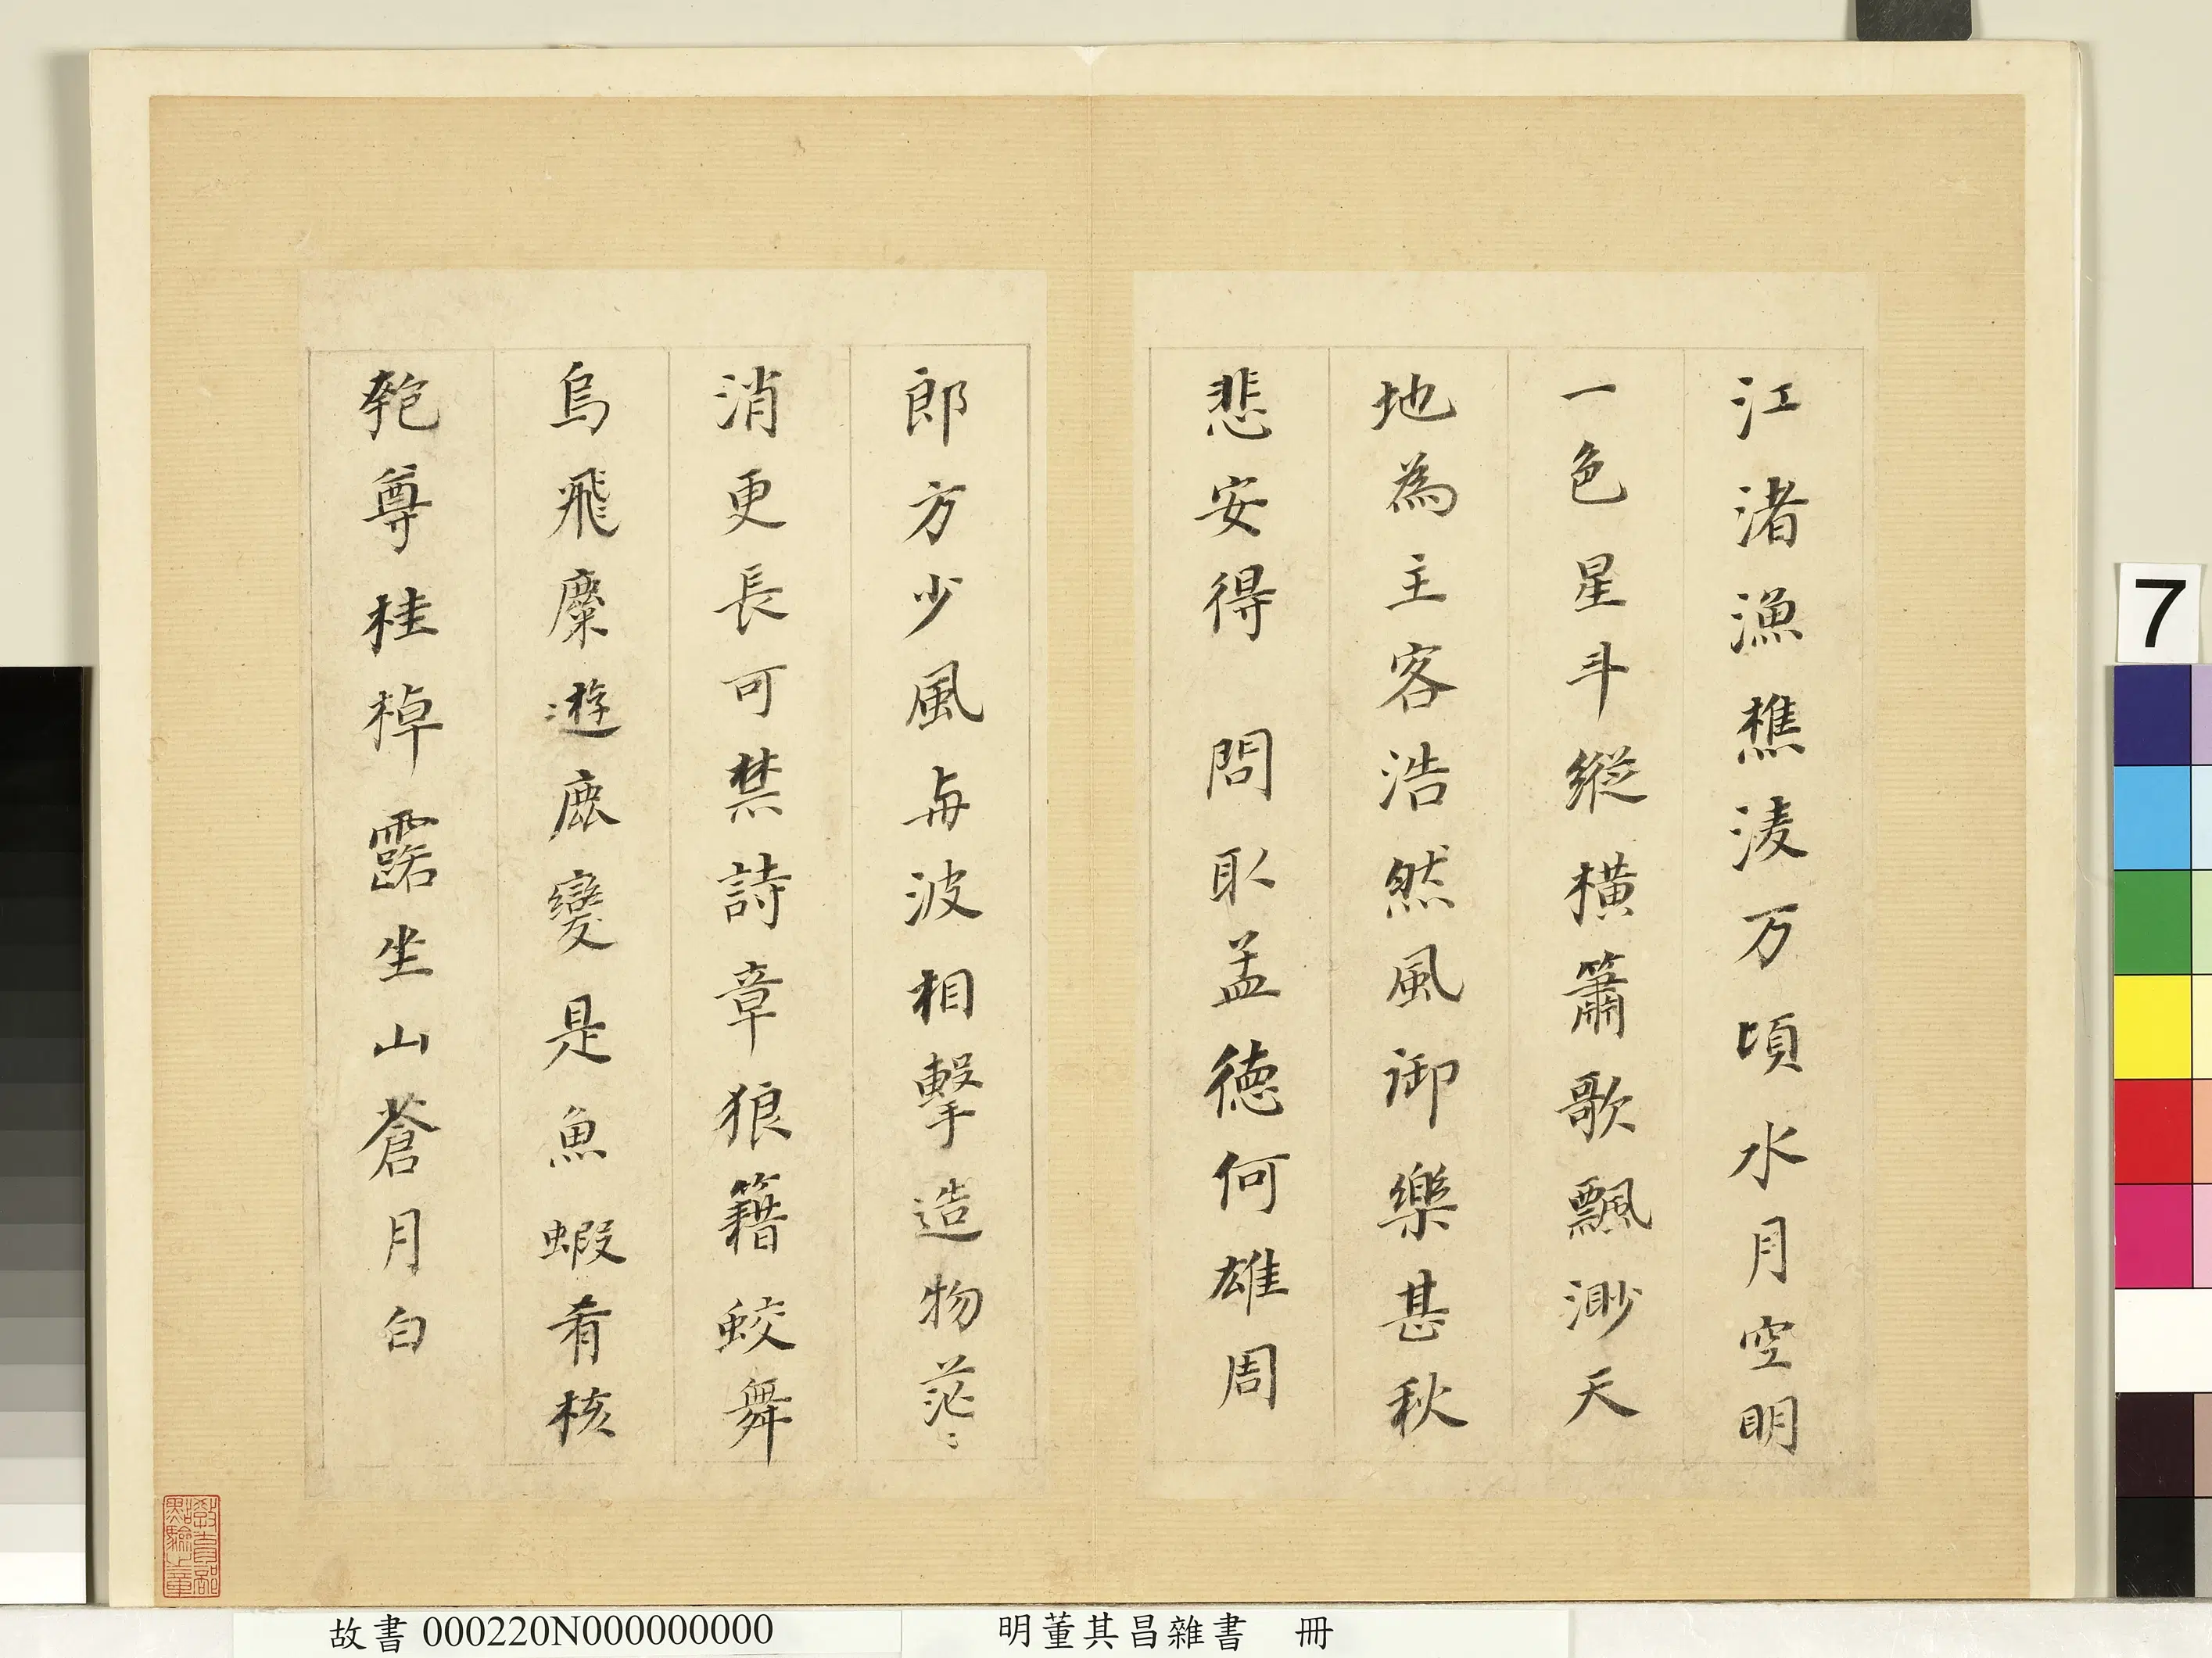 江渚漁樵淩万頃水月空明
一色星斗縱橫簫歌飄渺天
地為主客浩然風御樂甚秋
悲安得　問取孟德何雄周
郎方少風与波相擊造物茫〻
消更長可禁詩章狼籍蛟舞
烏飛麋遊鹿變是魚蝦肴核
匏尊桂棹露坐山蒼月白
教育部
點驗之章
7
故書 000220N000000000
明董其昌雜書　冊